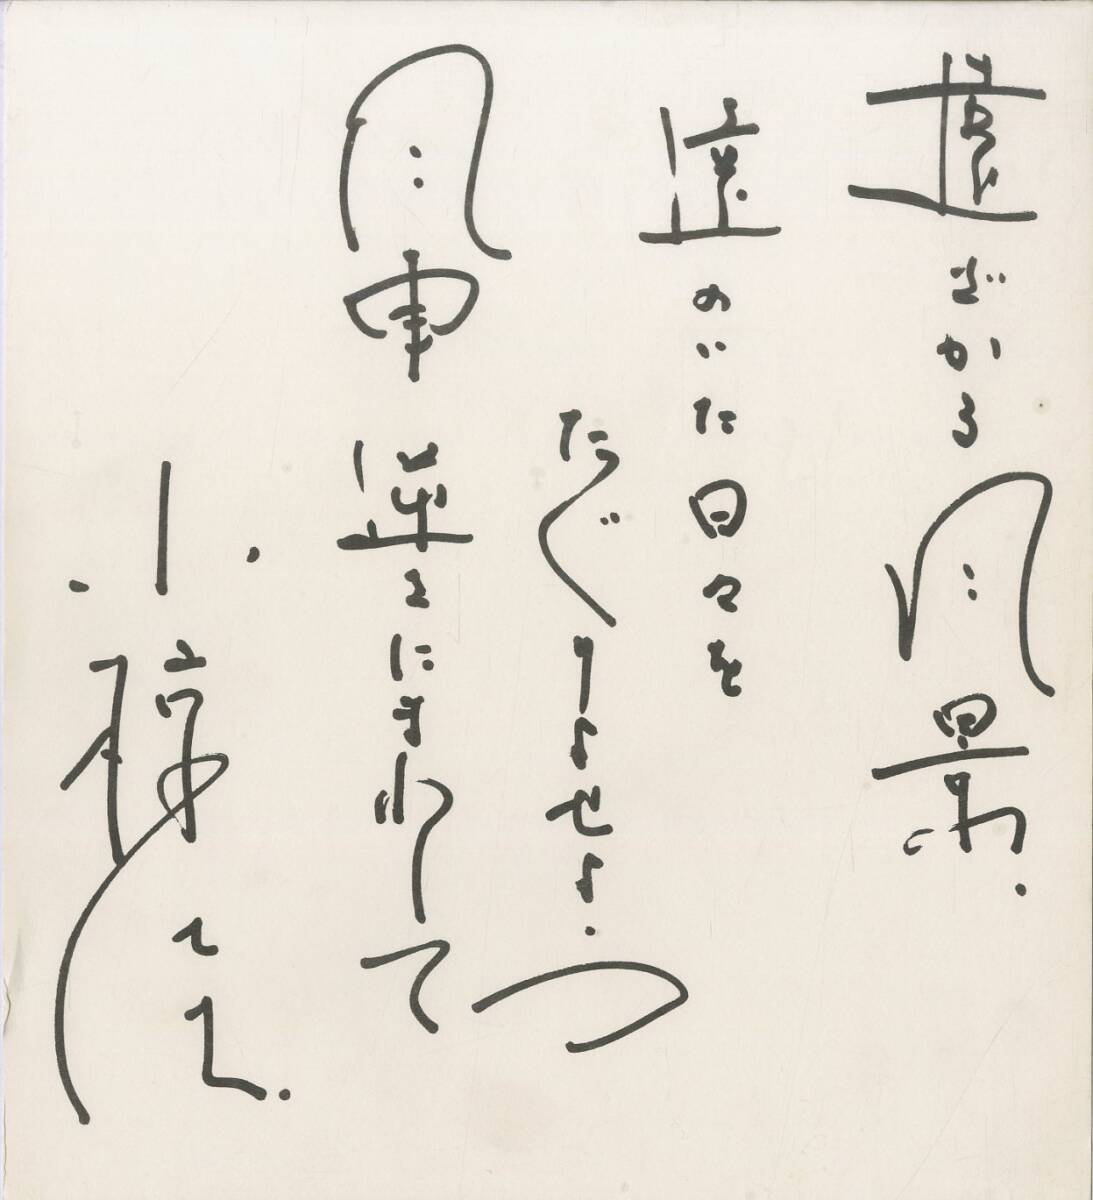 遠ざかる風景.
遠のいた日々を
たぐりよせよう
風車 逆さにまわして
小椋佳